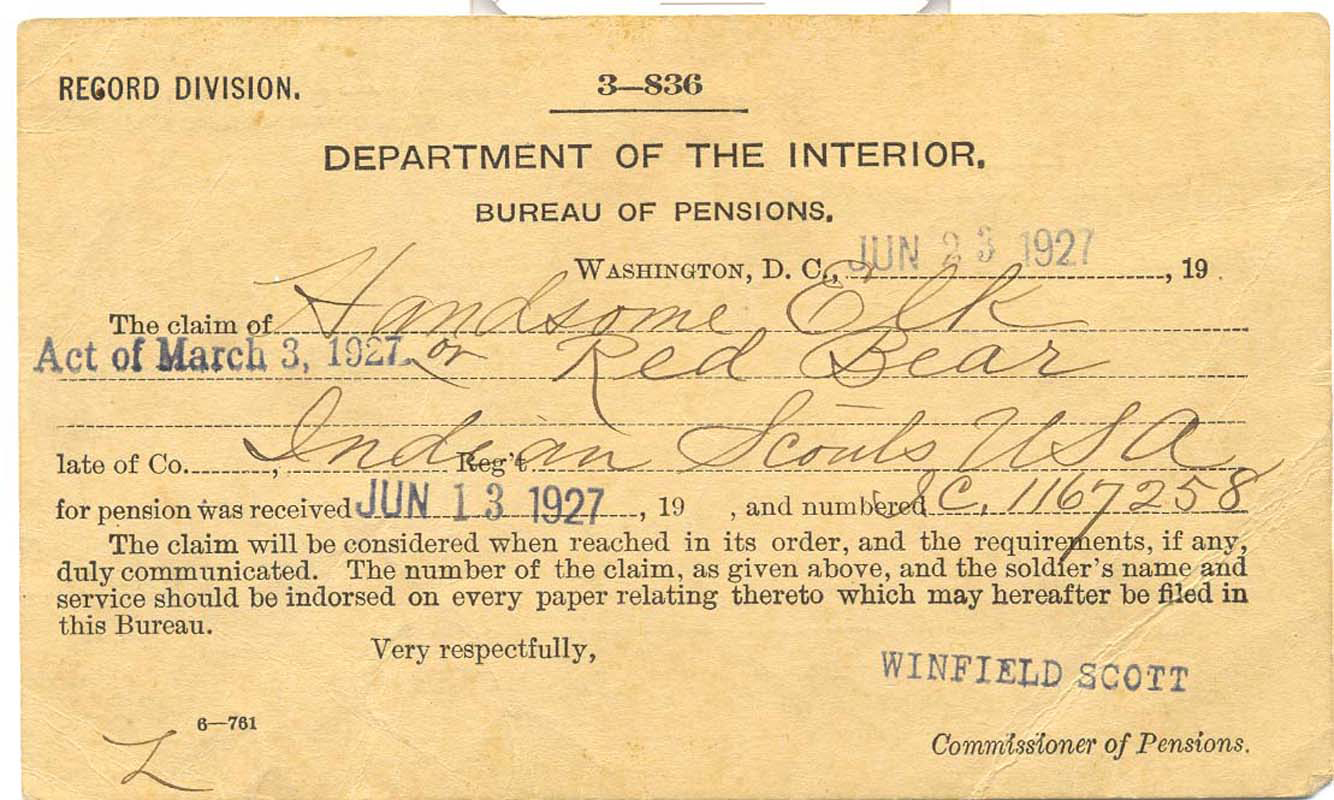 RECORD DIVISION.
3—836
DEPARTMENT OF THE INTERIOR.
BUREAU OF PENSIONS.
WASHINGTON, D. C., JUN 23 1927, 19
The claim of Handsome Elk
Act of March 3, 1927. or Red Bear
late of Co. , Indian Reg't Scouts USA
for pension was received JUN 13 1927, 19 , and numbered SC. 1167258
The claim will be considered when reached in its order, and the requirements, if any,
duly communicated. The number of the claim, as given above, and the soldier's name and
service should be indorsed on every paper relating thereto which may hereafter be filed in
this Bureau.
Very respectfully,
WINFIELD SCOTT
6—761
Commissioner of Pensions.
L